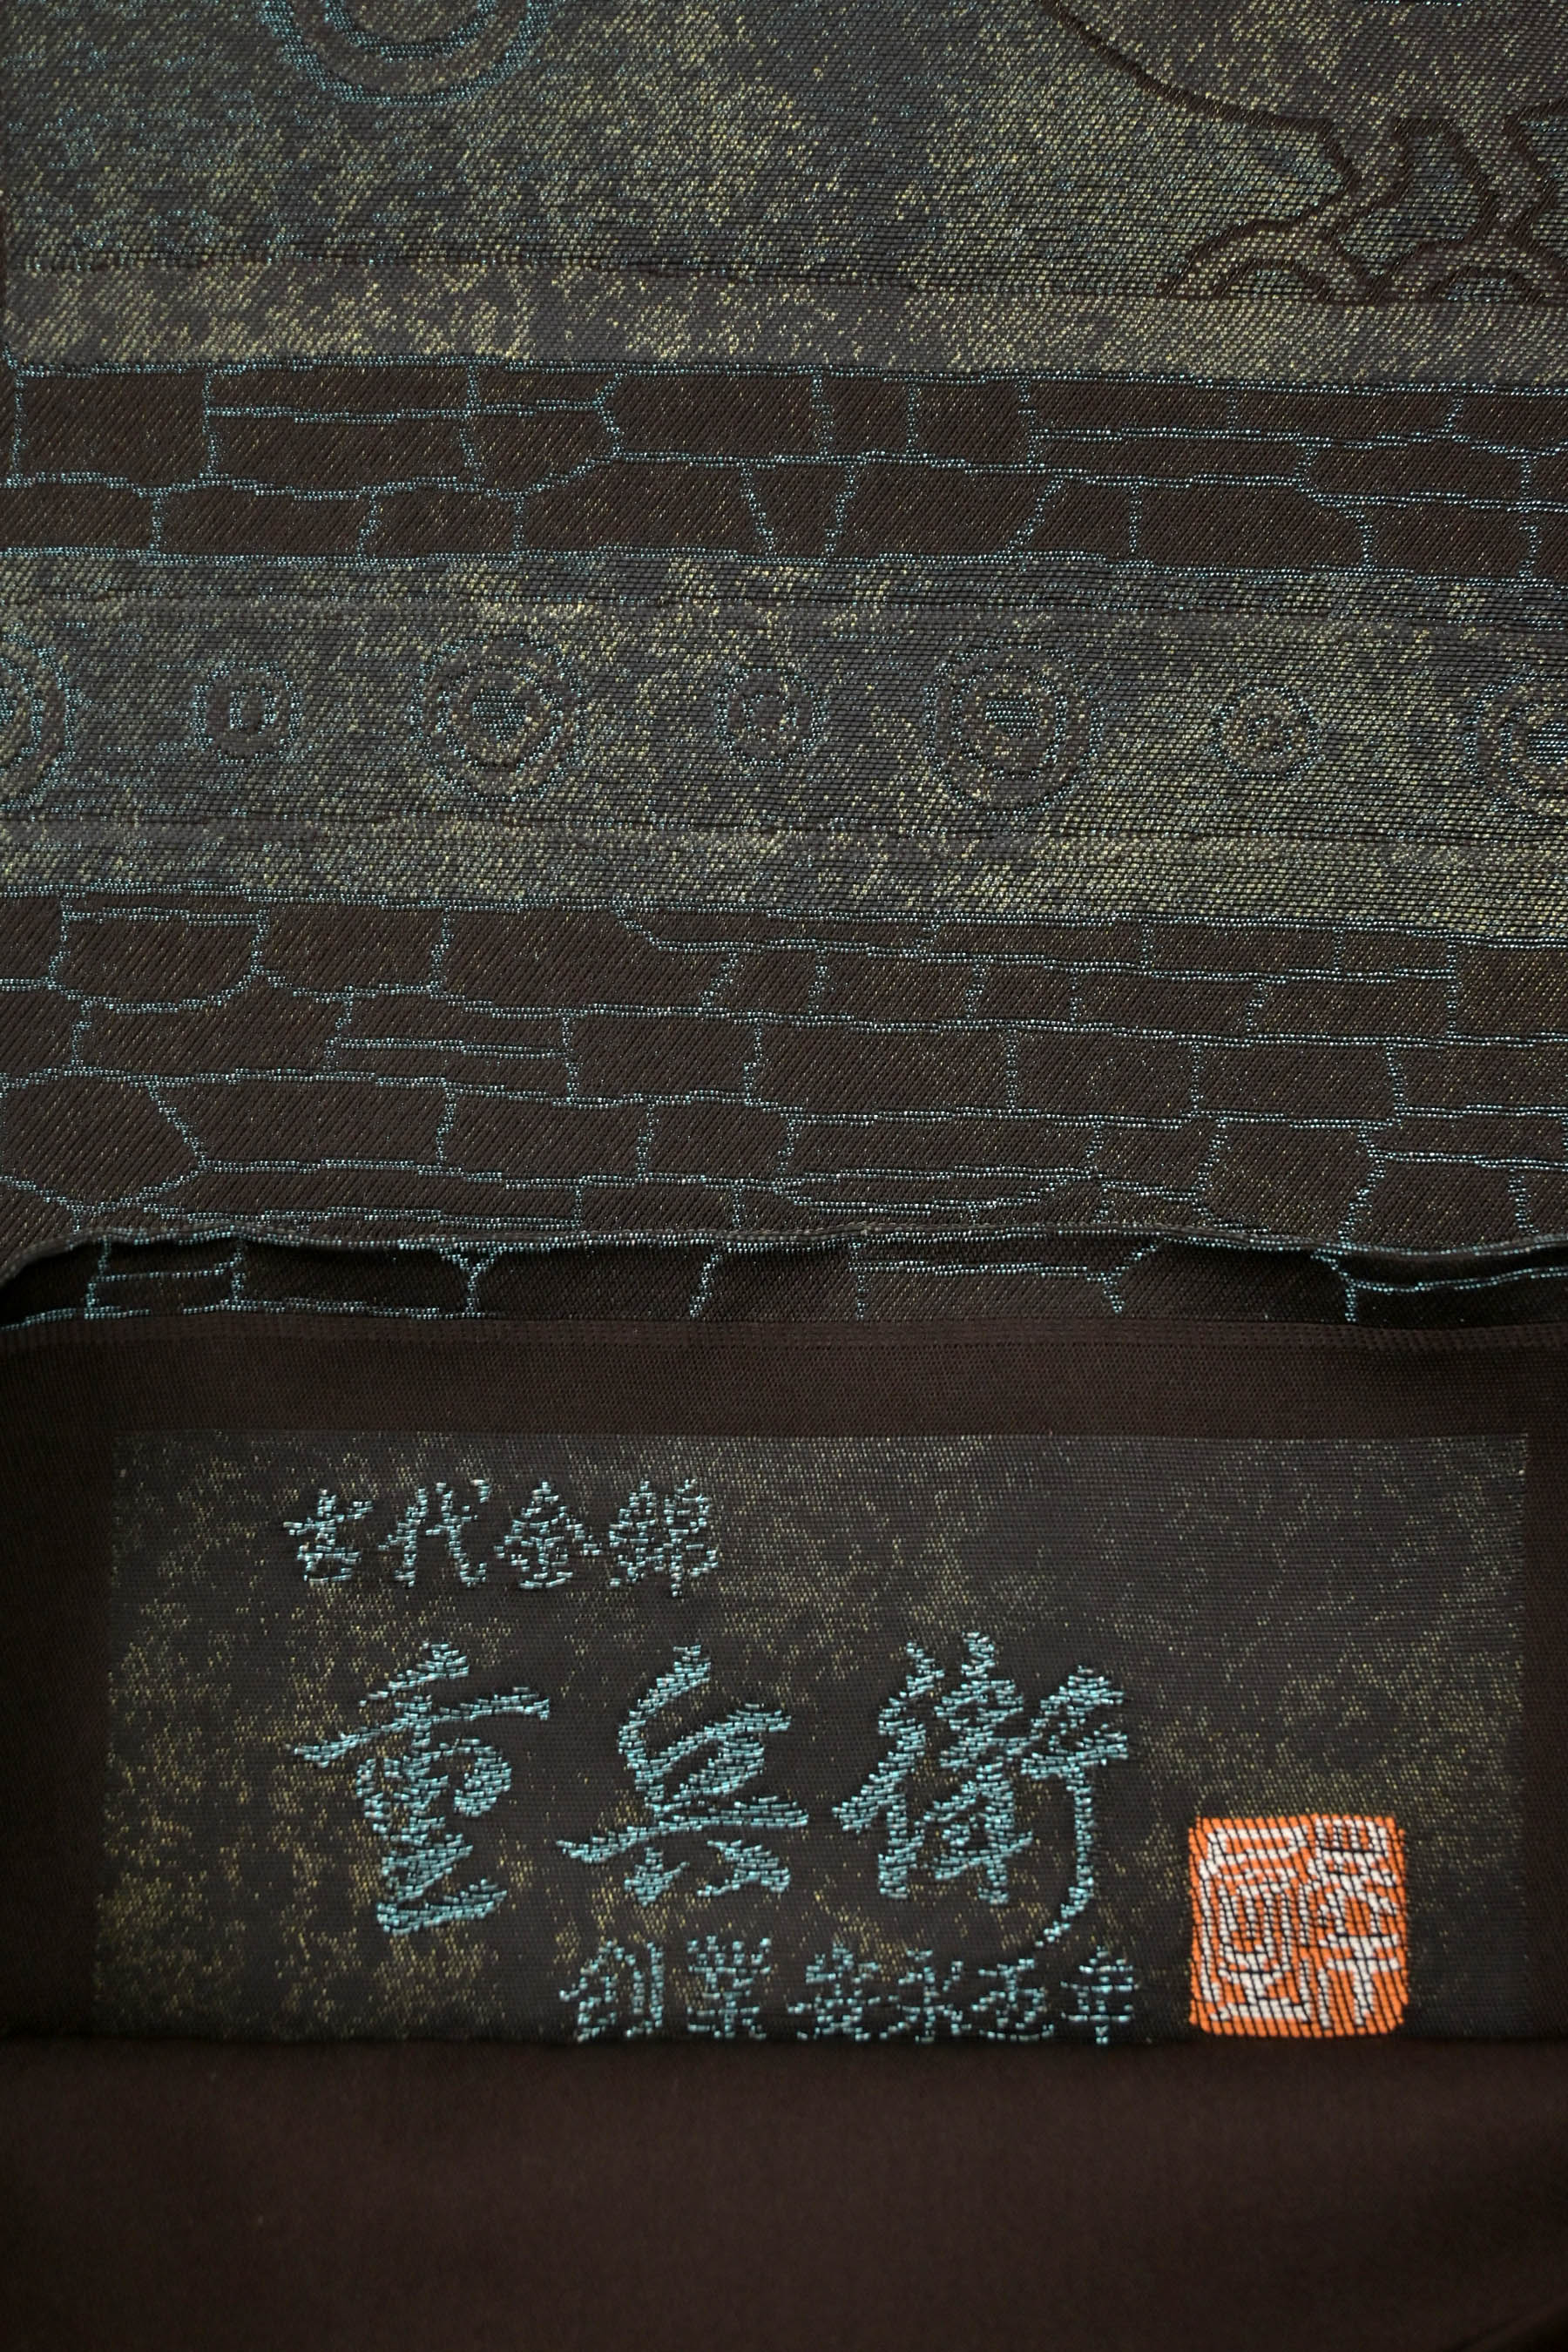 古代金錦
重兵衛
創業 安永丙申